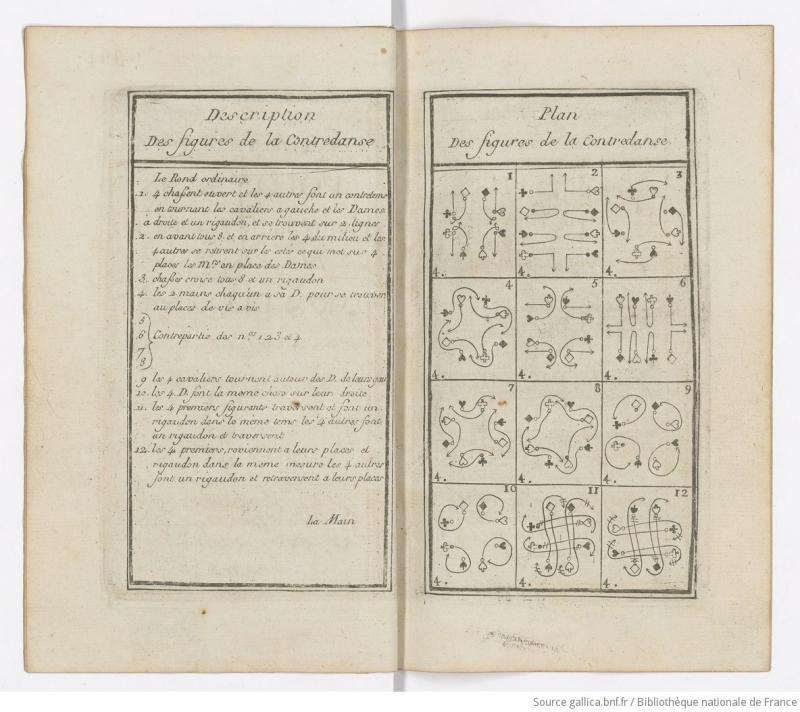 Description
Des figures de la Contredanse
Le Rond ordinaire
1. 4 chassent ouvert et les 4 autres font un contretems
en tournant les cavaliers a gauche et les Dames
a droite et un rigaudon, et se trouvent sur 2 lignes
2. en avant tous 8. et en arriere les 4 du milieu et les
4 autres se retirent sur les cotés ce qui met sur 4
places les M.rs en place des Dames
3. chassés croisé tous 8. et un rigaudon
4. les 2 mains chaqu'un a sa D. pour se trouver
au places de vis a vis
5
6 Contrepartie des n.os 1.2.3 et 4
7
8
9 les 4 cavaliers tournent autour des D. de leurs
10. les 4 D. font la meme chose sur leur droite
11. les 4 premiers figurants traversent et font un
rigaudon dans le meme tems les 4 autres font
un rigaudon et traversent
12. les 4 premiers, reviennent a leurs places et
rigaudon dans la meme mesure les 4 autres
font un rigaudon et retraversent a leurs places
La Main
Plan
Des figures de la Contredanse
1 2 3
4. 4. 4.
4 5 6
4. 4. 4.
7 8 9
4. 4. 4.
10 11 12
4. 4. 4.
Source gallica.bnf.fr / Bibliothèque nationale de France